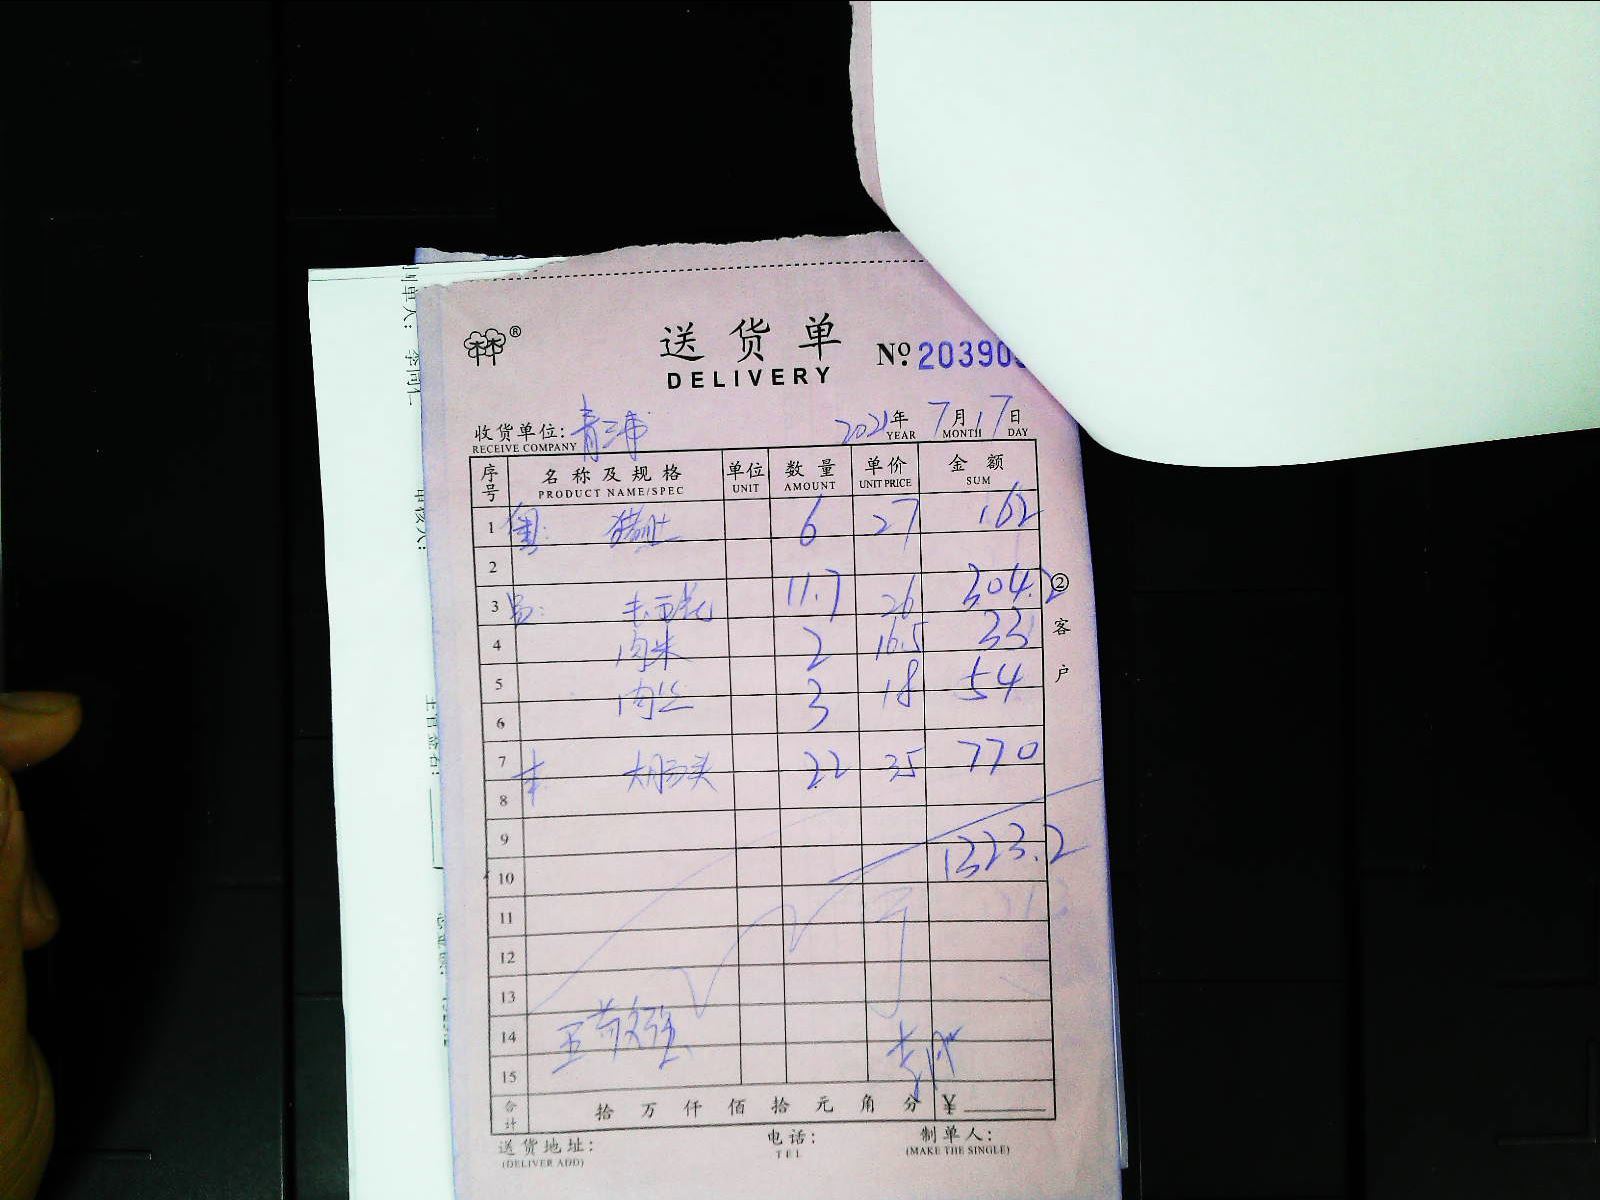 送货单
DELIVERY
№ 20390
收货单位:
RECEIVE COMPANY
2021年 7月17日
YEAR MONTH DAY
序号 名称及规格 单位 数量 单价 金额
PRODUCT NAME/SPEC UNIT AMOUNT UNIT PRICE SUM
1 猪肚 6 27 162
2
3 11.7 26 304.2
4 肉米 2 16.5 33
5 肉丝 3 18 54
6
7 大肠头 22 35 770
8
9
10 1323.2
11
12
13
14
15
合计 拾万仟佰拾元角分 ¥
送货地址:
(DELIVER ADD)
电话:
TEL
制单人:
(MAKE THE SINGLE)
②客户
审核人: